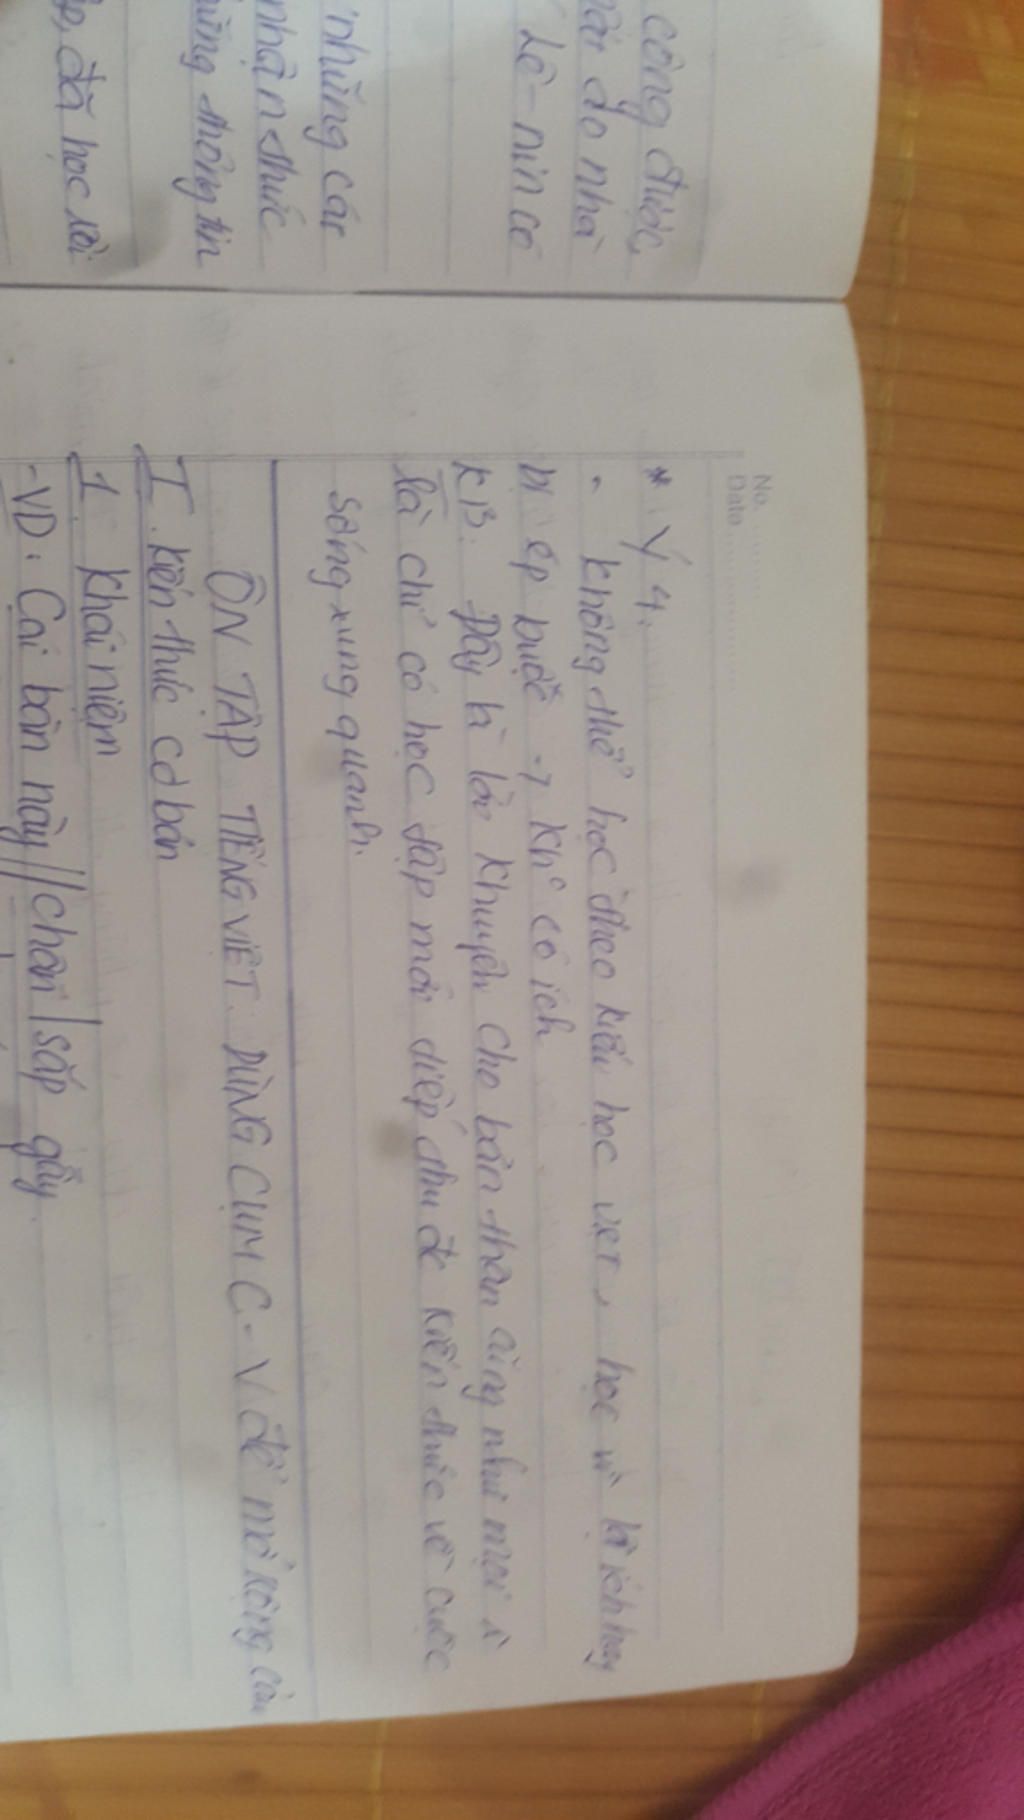 công được,
do nhà
Lê-nin có
những các
nhận thức
những thông tin
đã học rồi
No. ..........
Date ..................
* Ý 4.
- không thể học theo kiểu học vẹt, học vì lợi ích hay
bị ép buộc → kh° có ích
KB. Đây là lời khuyên cho bản thân cũng như mọi
là chỉ có học tập mới tiếp thu đc kiến thức về cuộc
sống xung quanh.
ÔN TẬP TIẾNG VIỆT: DÙNG CỤM C-V để mở rộng câu
I. kiến thức cơ bản
1 Khái niệm
-VD: Cái bàn này//chân|sắp gãy.